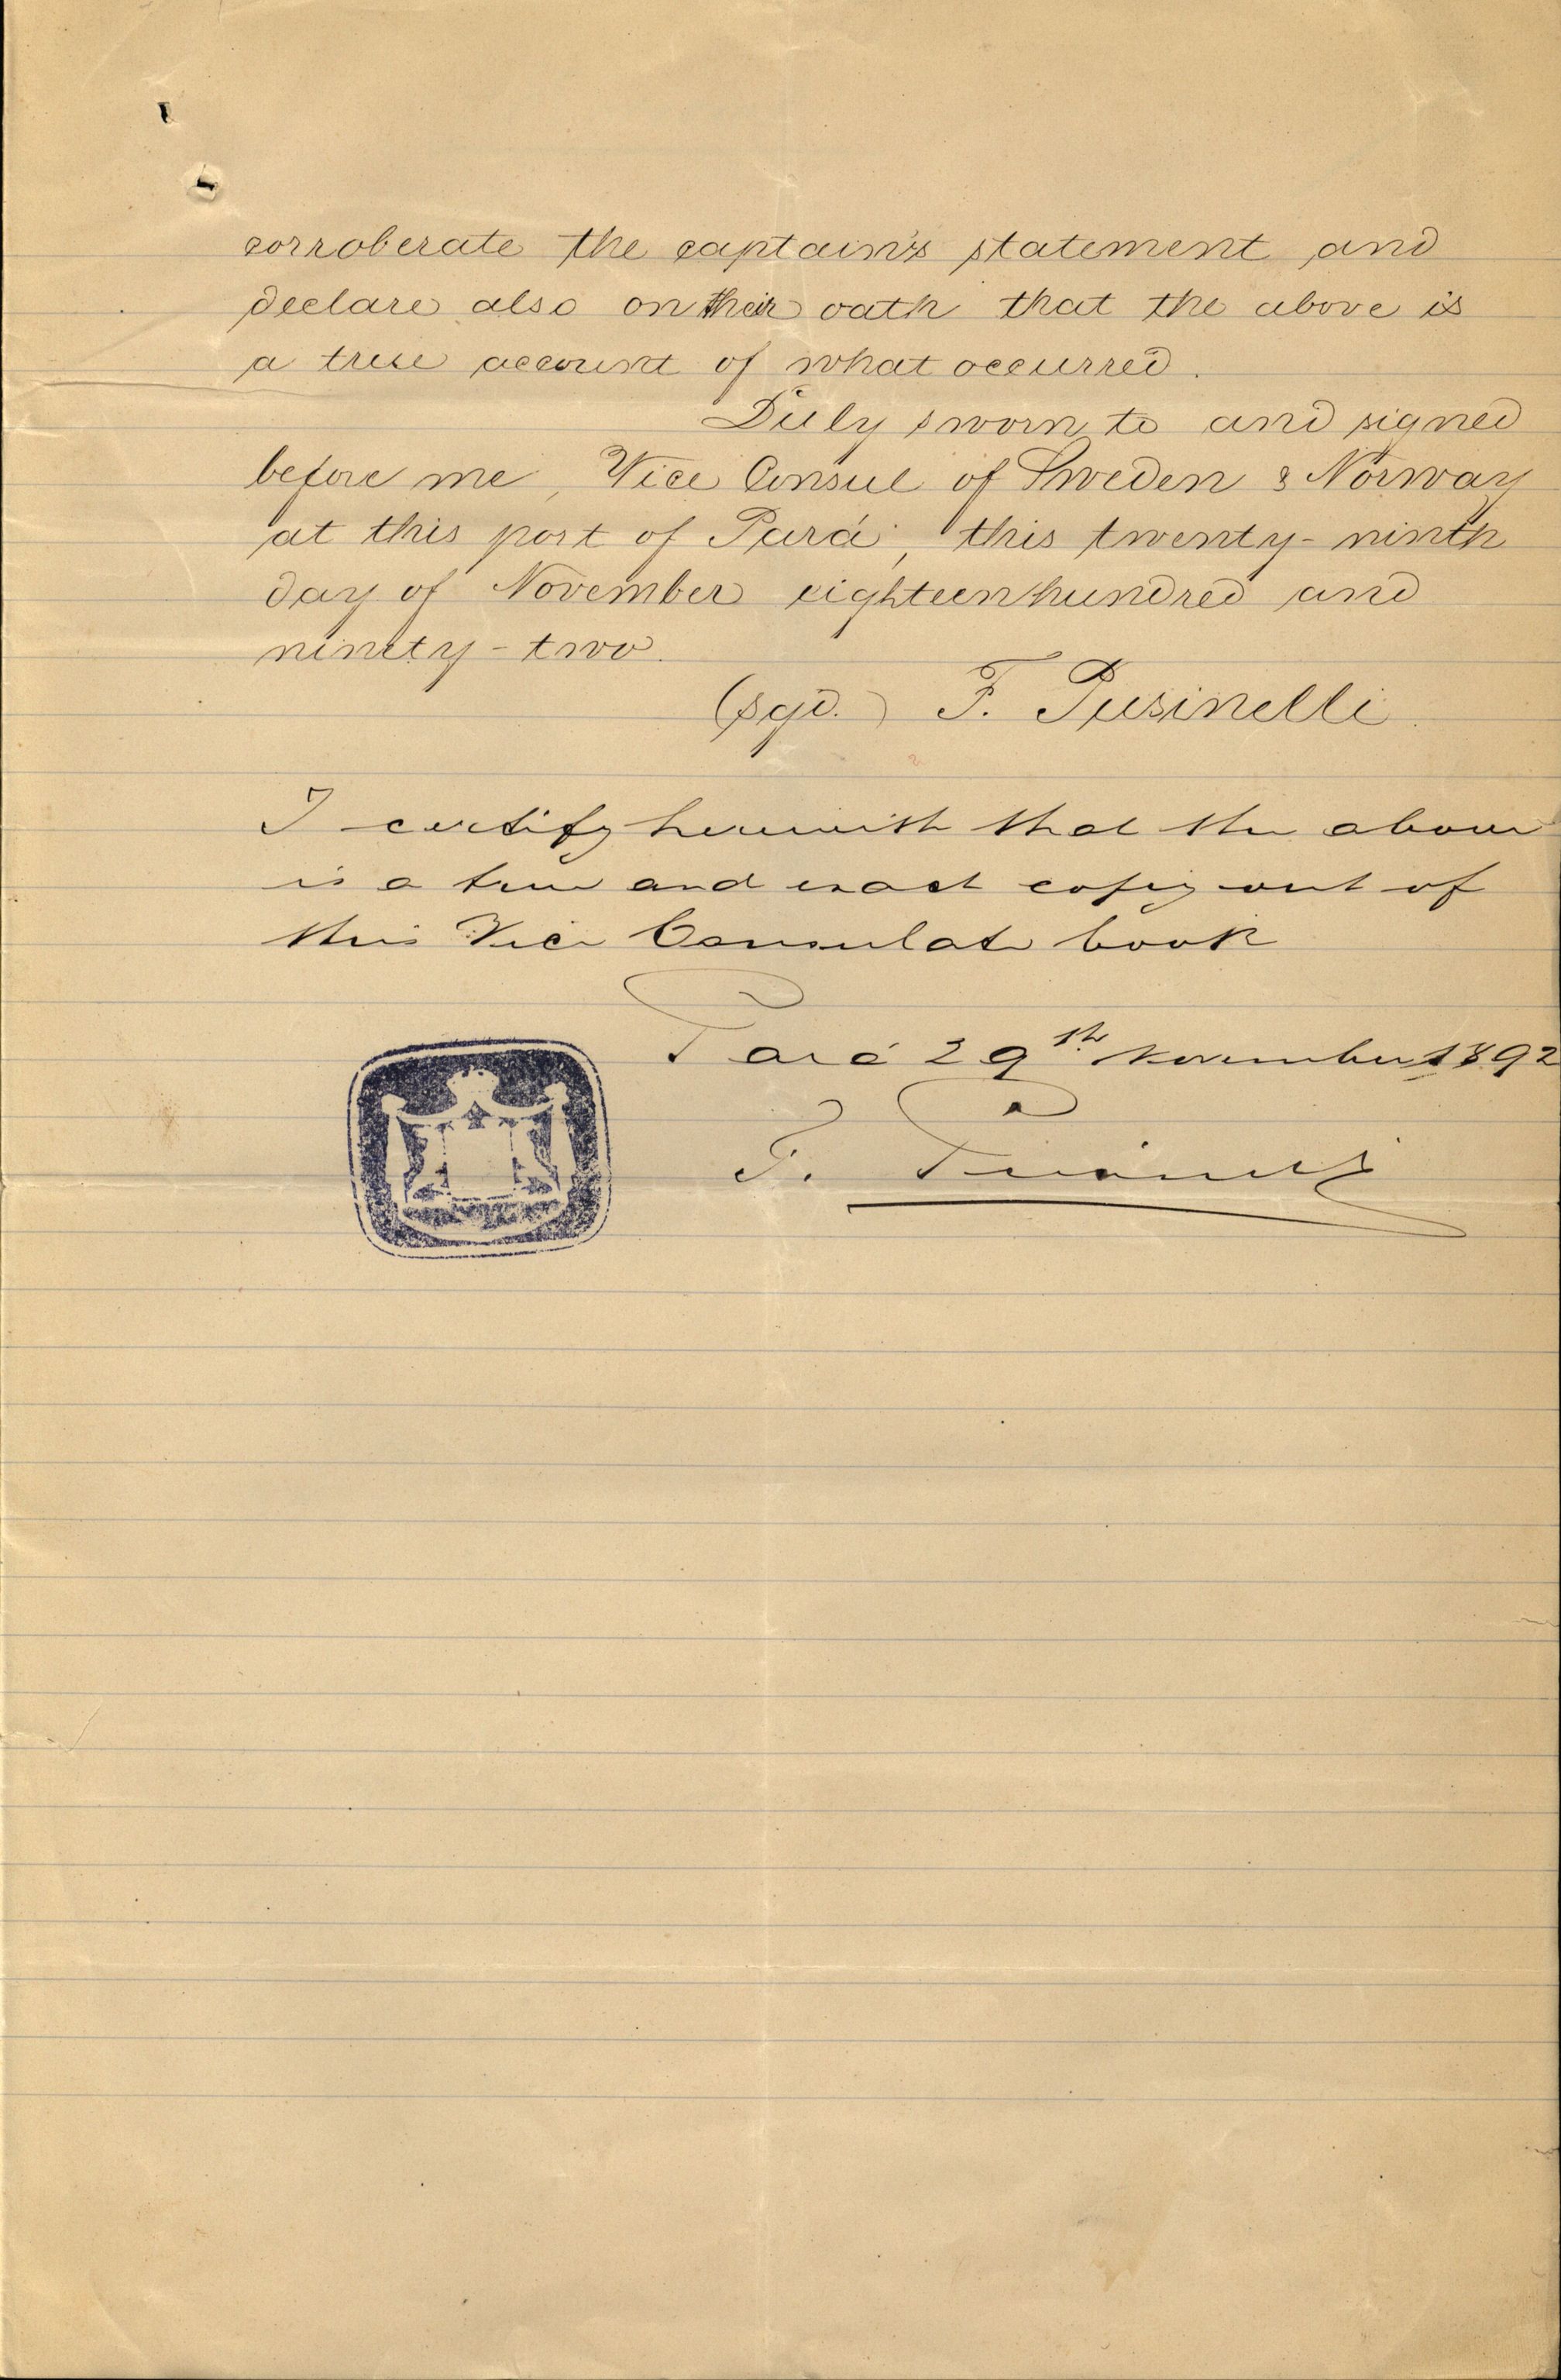 corroberate the captain's statement and
declare also on their oath that the above is
a true account of what occurred.
Duly sworn to and signed
before me, Vice Consul of Sweden & Norway
at this port of Pará, this twenty-ninth
day of November eighteenhundred and
ninety-two.
(sgd.) F. Pusinelli.
I certify herewith that the above
is a true and exact copy out of
this Vice Consulate book
Pará 29th November 1892
F. Pusinelli